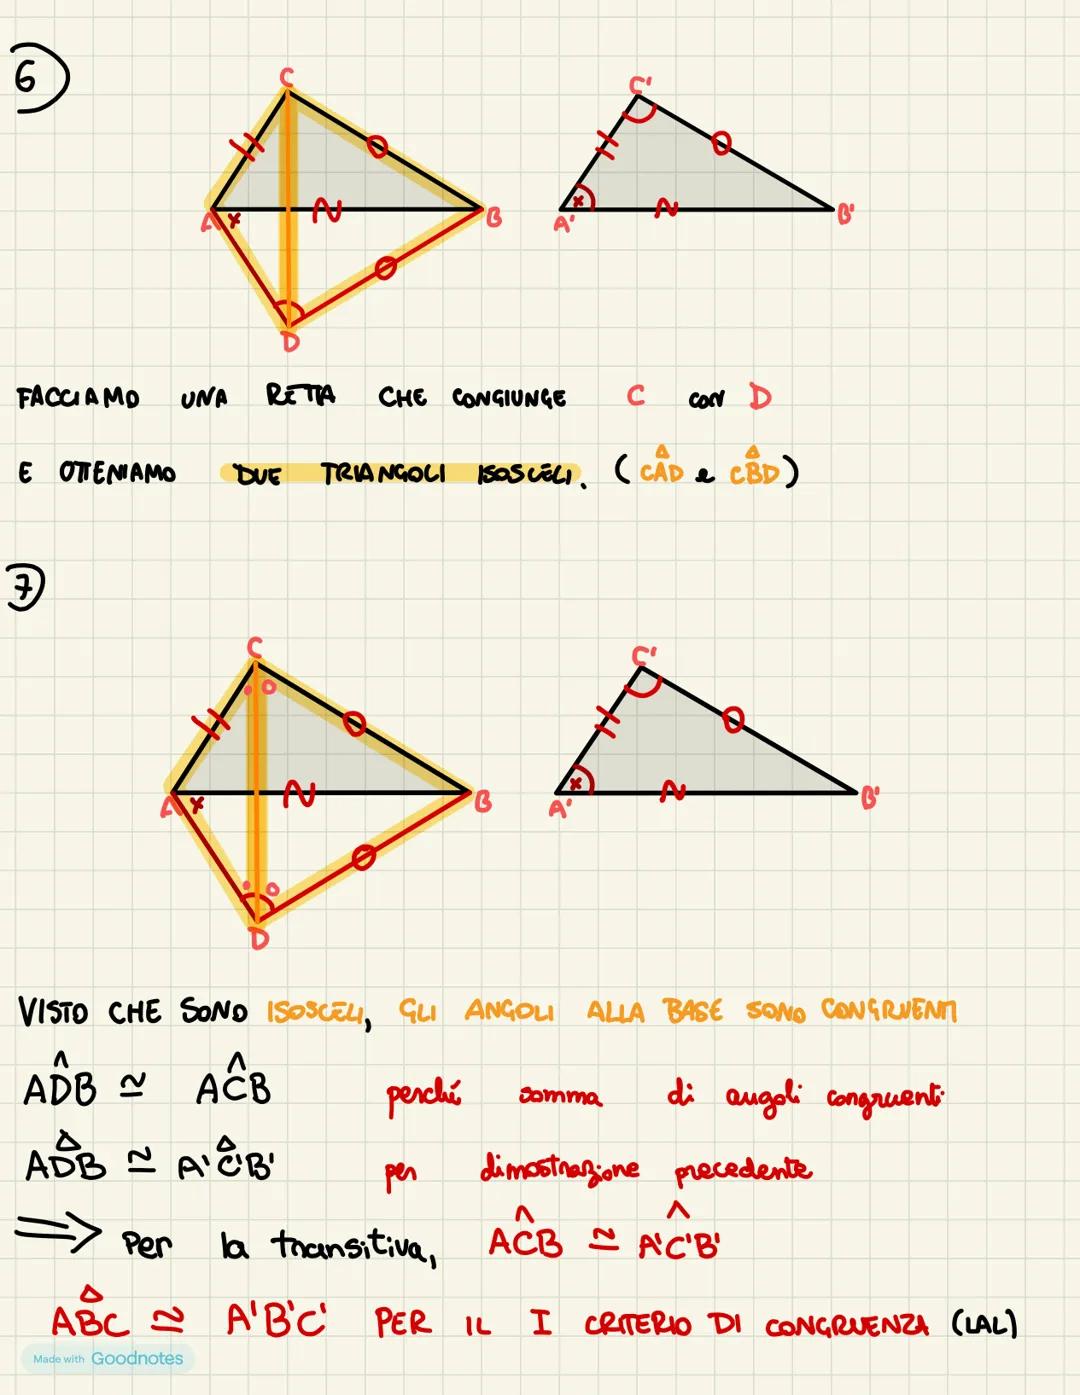 6
C C'
A x N B A' x N B'
D
FACCIAMO UNA RETTA CHE CONGIUNGE C con D
E OTTENIAMO DUE TRIANGOLI ISOSCELI. (CAD e CBD)
7
C C'
A x N B A' x N B'
D
VISTO CHE SONO ISOSCELI, GLI ANGOLI ALLA BASE SONO CONGRUENTI
AD̂B ≅ AĈB perché somma di angoli congruenti
ADB ≅ A'C'B' per dimostrazione precedente
⇒ Per la transitiva, AĈB ≅ A'Ĉ'B'
ABC ≅ A'B'C' PER IL I CRITERIO DI CONGRUENZA (LAL)
Made with Goodnotes